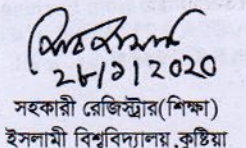 ২৮/১/২০২০
সহকারী রেজিস্ট্রার(শিক্ষা)
ইসলামী বিশ্ববিদ্যালয়,কুষ্টিয়া